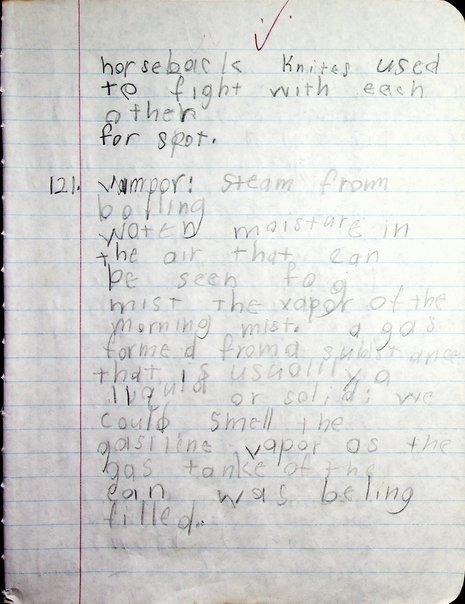 horseback Knites used
to fight with each
other
for spot.
121. Vampor: steam from
boiling
water moisture in
the air that can
be seen fog
mist the vapor of the
morning mist. a gas
formed from a substance
that is usually a
liquid or solid: we
could smell the
gasilene vapor as the
gas tanke of the
can was beling
filled.